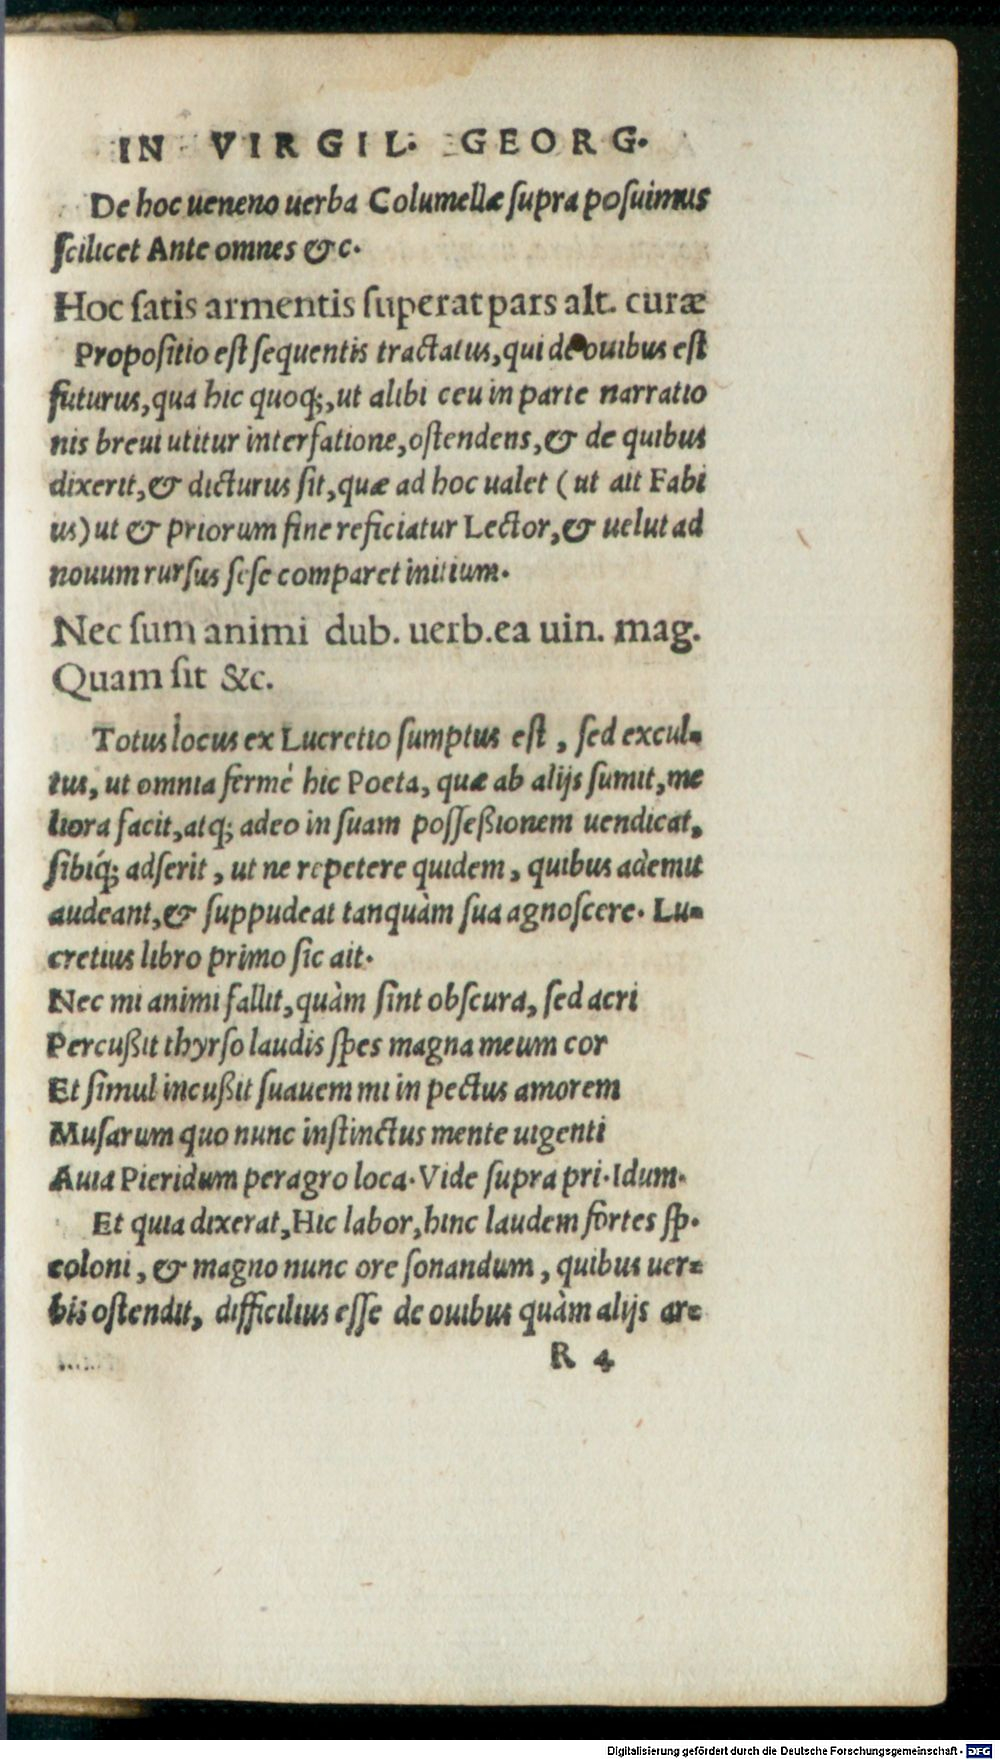 IN VIRGIL. GEORG.
De hoc ueneno uerba Columellæ supra posuimus
scilicet Ante omnes & c.
Hoc satis armentis superat pars alt. curæ
Propositio est sequentis tractatus, qui de ouibus est
futurus, qua hic quoq;, ut alibi ceu in parte narratio
nis breui utitur interfatione, ostendens, & de quibus
dixerit, & dicturus sit, quæ ad hoc ualet ( ut ait Fabi
us) ut & priorum fine reficiatur Lector, & uelut ad
nouum rursus sese comparet initium.
Nec sum animi dub. uerb. ea uin. mag.
Quam sit &c.
Totus locus ex Lucretio sumptus est, sed excul-
tus, ut omnia fermè hic Poeta, quæ ab alijs sumit, me
liora facit, atq; adeo in suam posseßionem uendicat,
sibiq́; adserit, ut ne repetere quidem, quibus ademit
audeant, & suppudeat tanquàm sua agnoscere. Lu-
cretius libro primo sic ait.
Nec mi animi fallit, quàm sint obscura, sed acri
Percußit thyrso laudis spes magna meum cor
Et simul incußit suauem mi in pectus amorem
Musarum quo nunc instinctus mente uigenti
Auia Pieridum peragro loca. Vide supra pri. Idum.
Et quia dixerat, Hic labor, hinc laudem fortes sp.
coloni, & magno nunc ore sonandum, quibus uer=
bis ostendit, difficilius esse de ouibus quàm alijs ar=
R 4
Digitalisierung gefördert durch die Deutsche Forschungsgemeinschaft - DFG